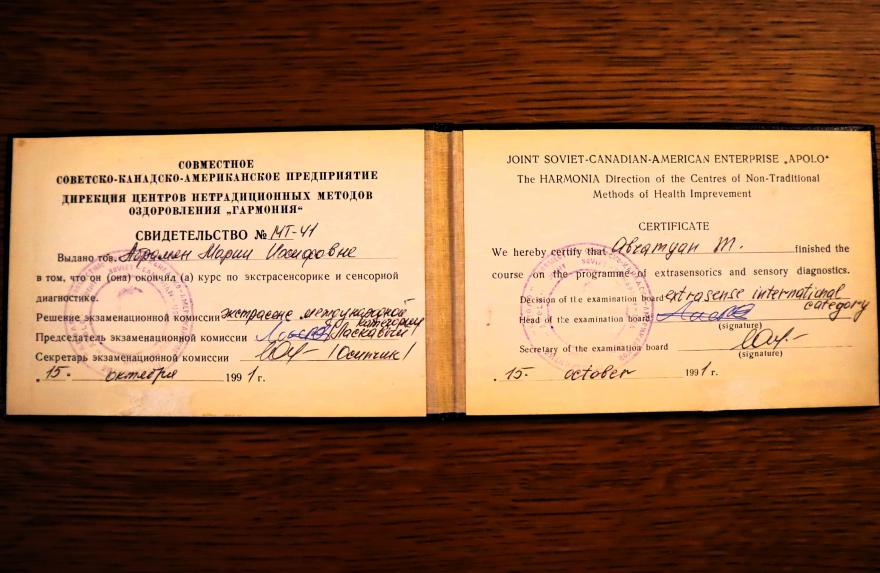 СОВМЕСТНОЕ
СОВЕТСКО-КАНАДСКО-АМЕРИКАНСКОЕ ПРЕДПРИЯТИЕ
ДИРЕКЦИЯ ЦЕНТРОВ НЕТРАДИЦИОННЫХ МЕТОДОВ
ОЗДОРОВЛЕНИЯ „ГАРМОНИЯ“
СВИДЕТЕЛЬСТВО № МТ-41
Выдано тов. Марии Иосифовне
в том, что он (она) окончил (а) курс по экстрасенсорике и сенсорной
диагностике.
Решение экзаменационной комиссии экстрасенс международной
категории
Председатель экзаменационной комиссии
Секретарь экзаменационной комиссии
„15. октября 1991 г.
JOINT SOVIET-CANADIAN-AMERICAN ENTERPRISE „APOLO“
The HARMONIA Direction of the Centres of Non-Traditional
Methods of Health Imprevement
CERTIFICATE
We hereby certify that M. finished the
course on the programme of extrasensorics and sensory diagnostics.
Decision of the examination board extrasense international
category
Head of the examination board
(signature)
Secretary of the examination board
(signature)
„15. october 1991 г.